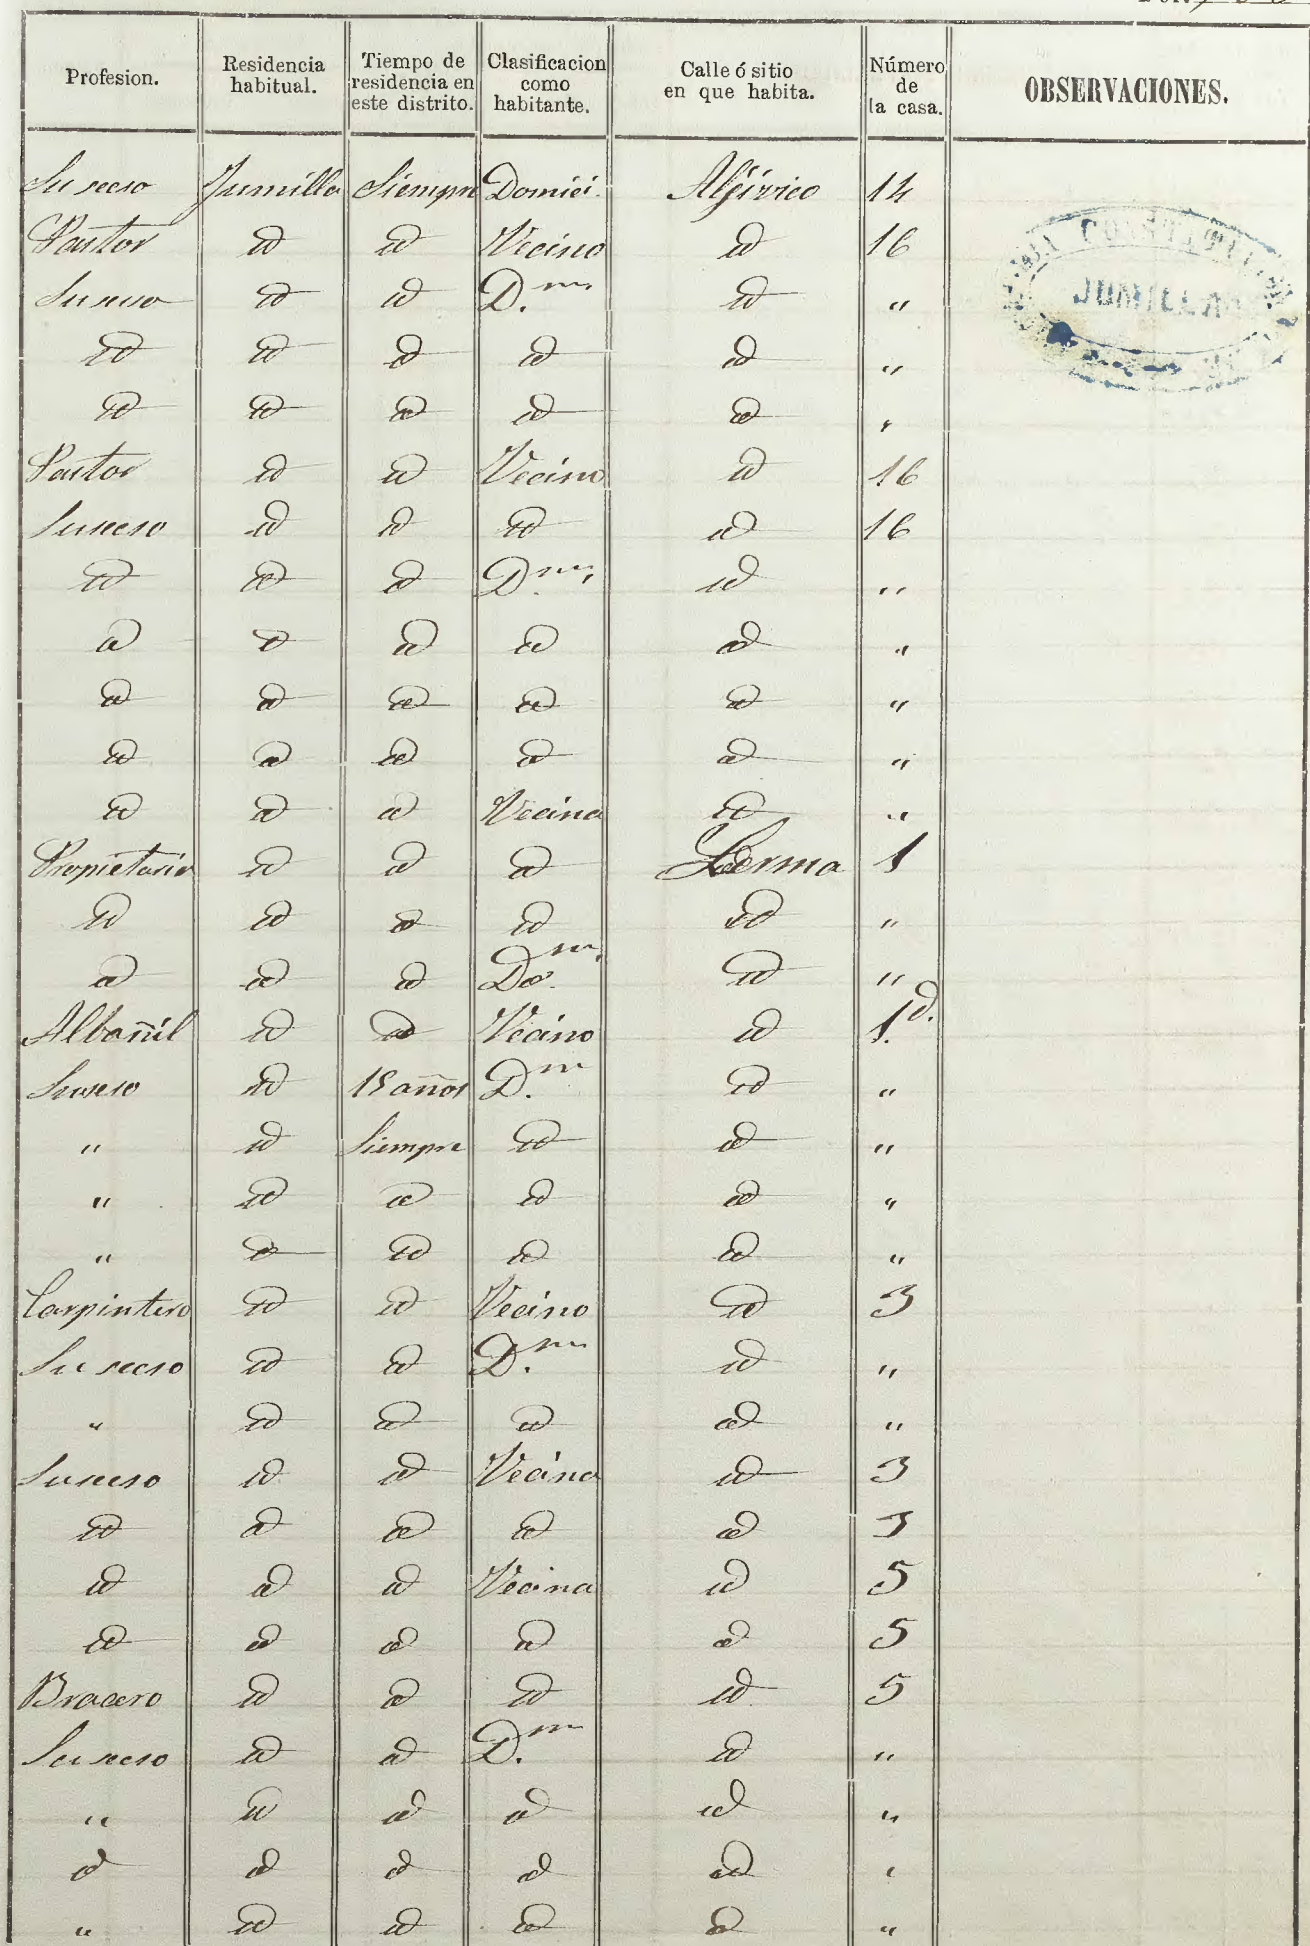 Profesion. Residencia habitual. Tiempo de residencia en este distrito. Clasificacion como habitante. Calle ó sitio en que habita. Número de la casa. OBSERVACIONES.
Su secso Jumilla Siempre Domici. Algivico 14
Pastor id id Vecino id 16
Su secso id id D.m id "
id id id id id "
id id id id id "
Pastor id id Vecino id 16
Su secso id id id id 16
id id id D.m id "
id id id id id "
id id id id id "
id id id id id "
id id id Vecina id "
Propietario id id id Lerma 1
id id id id id "
id id id Do.m id "
Albañil id id Vecino id 1.d.
Su secso id 15 años D.m id "
" id Siempre id id "
" id id id id "
" id id id id "
Carpintero id id Vecino id 3
Su secso id id D.m id "
" id id id id "
Su secso id id Vecina id 3
id id id id id 3
id id id Vecina id 5
id id id id id 5
Bracero id id id id 5
Su secso id id D.m id "
" id id id id "
id id id id id "
" id id id id "
JUMILLA